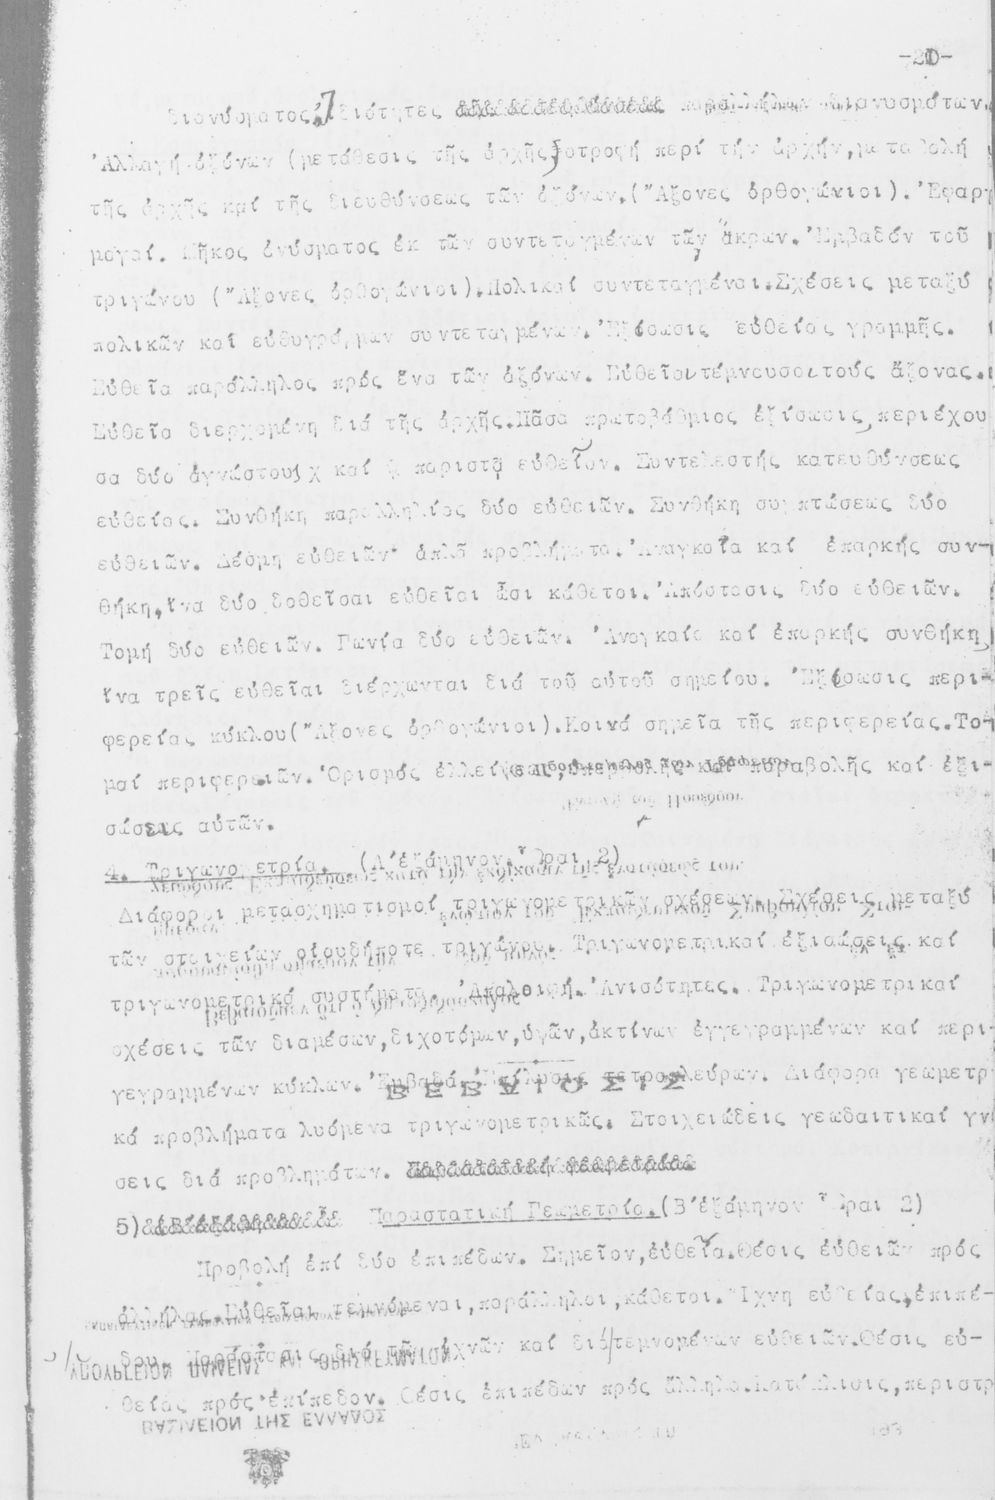 -20-
διανύσματος, Ἰδιότητες παραλλήλων διανυσμάτων.
Ἀλλαγή ἀξόνων (μετάθεσις τῆς ἀρχῆς, στροφή περί τήν ἀρχήν, μεταβολή
τῆς ἀρχῆς καί τῆς διευθύνσεως τῶν ἀξόνων.(Ἄξονες ὀρθογώνιοι). Ἐφαρ
μογαί. Μῆκος ἀνύσματος ἐκ τῶν συντεταγμένων τῶν ἄκρων. Ἐμβαδόν τοῦ
τριγώνου (Ἄξονες ὀρθογώνιοι).Πολικαί συντεταγμέναι.Σχέσεις μεταξύ
πολικῶν καί εὐθυγράμμων συντεταγμένων. Ἐξίσωσις εὐθείας γραμμῆς.
Εὐθεῖα παράλληλος πρός ἕνα τῶν ἀξόνων. Εὐθεῖαι τέμνουσαι τούς ἄξονας.
Εὐθεῖα διερχομένη διά τῆς ἀρχῆς.Πᾶσα πρωτοβάθμιος ἐξίσωσις, περιέχου
σα δύο ἀγνώστους χ καί ψ παριστᾷ εὐθεῖαν. Συντελεστής κατευθύνσεως
εὐθείας. Συνθήκη παραλληλίας δύο εὐθειῶν. Συνθήκη συμπτώσεως δύο
εὐθειῶν. Δέσμη εὐθειῶν· ἁπλᾶ προβλήματα. Ἀναγκαία καί ἐπαρκής συν-
θήκη, ἵνα δύο δοθεῖσαι εὐθεῖαι ὦσι κάθετοι. Ἀπόστασις δύο εὐθειῶν.
Τομή δύο εὐθειῶν. Γωνία δύο εὐθειῶν. Ἀναγκαία καί ἐπαρκής συνθήκη,
ἵνα τρεῖς εὐθεῖαι διέρχωνται διά τοῦ αὐτοῦ σημείου. Ἐξίσωσις περι-
φερείας κύκλου(Ἄξονες ὀρθογώνιοι).Κοινά σημεῖα τῆς περιφερείας.Το-
μαί περιφερειῶν. Ὁρισμός ἐλλείψεως, ὑπερβολῆς καί παραβολῆς καί ἐξι-
σώσεις αὐτῶν.
4. Τριγωνομετρία. (Α'ἑξάμηνον. Ὧραι 2)
Διάφοροι μετασχηματισμοί τριγωνομετρικῶν σχέσεων. Σχέσεις μεταξύ
τῶν στοιχείων οἱουδήποτε τριγώνου. Τριγωνομετρικαί ἐξισώσεις καί
τριγωνομετρικά συστήματα. Ἀπαλοιφή. Ἀνισότητες. Τριγωνομετρικαί
σχέσεις τῶν διαμέσων, διχοτόμων, ὑψῶν, ἀκτίνων ἐγγεγραμμένων καί περι
γεγραμμένων κύκλων. Ἐμβαδά. Ἐπίλυσις τετραπλεύρων. Διάφορα γεωμετρ
κά προβλήματα λυόμενα τριγωνομετρικῶς. Στοιχειώδεις γεωδαιτικαί γν
σεις διά προβλημάτων.
5) Παραστατική Γεωμετρία.(Β'ἑξάμηνον Ὧραι 2)
Προβολή ἐπί δύο ἐπιπέδων. Σημεῖον, εὐθεῖα. Θέσις εὐθειῶν πρός
ἀλλήλας. Εὐθεῖαι τεμνόμεναι, παράλληλοι, κάθετοι. Ἴχνη εὐθείας, ἐπιπέ-
δου. Παράστασις διά τῶν ἰχνῶν καί διά τεμνομένων εὐθειῶν.Θέσις εὐ-
θείας πρός ἐπίπεδον. Θέσις ἐπιπέδων πρός ἄλληλα.Κατάκλισις, περιστρ
ΒΕΒΑΙΩΣΙΣ
ΥΠΟΥΡΓΕΙΟΝ ΠΑΙΔΕΙΑΣ ΚΑΙ ΘΡΗΣΚΕΥΜΑΤΩΝ
ΒΑΣΙΛΕΙΟΝ ΤΗΣ ΕΛΛΑΔΟΣ